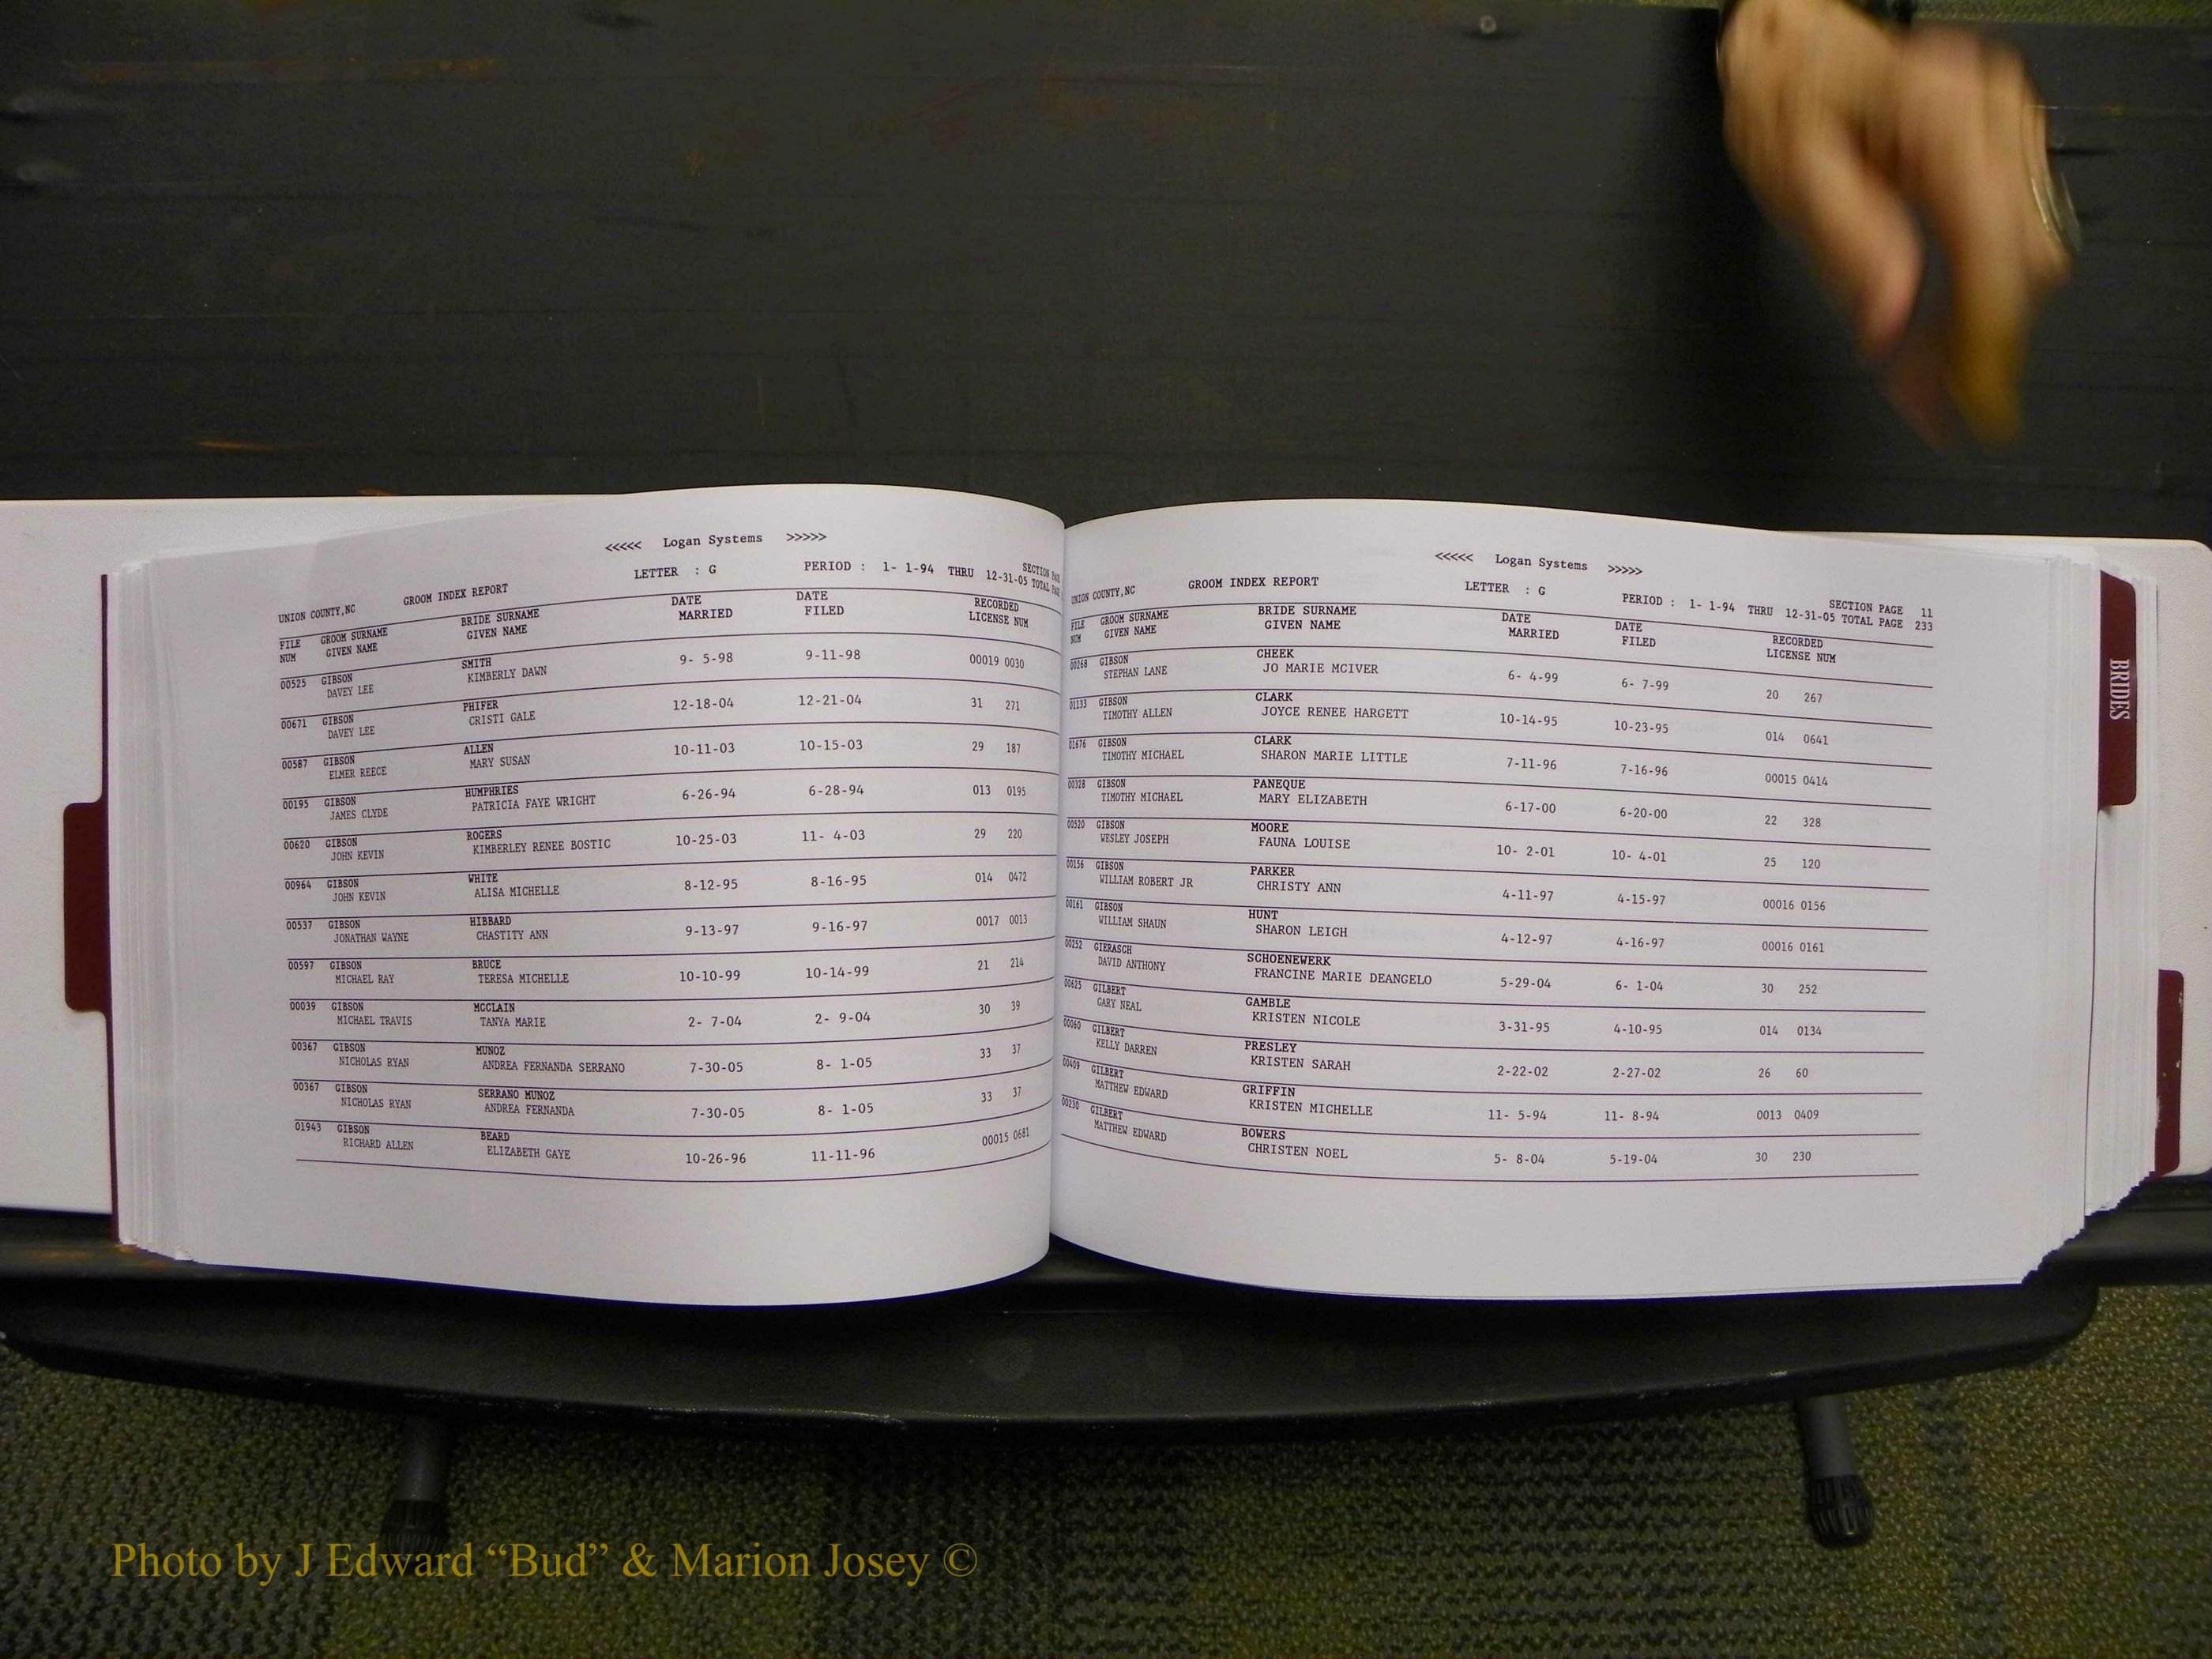 <<<<< Logan Systems >>>>>
UNION COUNTY,NC GROOM INDEX REPORT LETTER : G PERIOD : 1- 1-94 THRU 12-31-05 SECTION PAGE
TOTAL PAGE
FILE GROOM SURNAME BRIDE SURNAME DATE DATE RECORDED
NUM GIVEN NAME GIVEN NAME MARRIED FILED LICENSE NUM
00525 GIBSON SMITH 9- 5-98 9-11-98 00019 0030
DAVEY LEE KIMBERLY DAWN
00671 GIBSON PHIFER 12-18-04 12-21-04 31 271
DAVEY LEE CRISTI GALE
00587 GIBSON ALLEN 10-11-03 10-15-03 29 187
ELMER REECE MARY SUSAN
00195 GIBSON HUMPHRIES 6-26-94 6-28-94 013 0195
JAMES CLYDE PATRICIA FAYE WRIGHT
00620 GIBSON ROGERS 10-25-03 11- 4-03 29 220
JOHN KEVIN KIMBERLEY RENEE BOSTIC
00964 GIBSON WHITE 8-12-95 8-16-95 014 0472
JOHN KEVIN ALISA MICHELLE
00537 GIBSON HIBBARD 9-13-97 9-16-97 0017 0013
JONATHAN WAYNE CHASTITY ANN
00597 GIBSON BRUCE 10-10-99 10-14-99 21 214
MICHAEL RAY TERESA MICHELLE
00039 GIBSON MCCLAIN 2- 7-04 2- 9-04 30 39
MICHAEL TRAVIS TANYA MARIE
00367 GIBSON MUNOZ 7-30-05 8- 1-05 33 37
NICHOLAS RYAN ANDREA FERNANDA SERRANO
00367 GIBSON SERRANO MUNOZ 7-30-05 8- 1-05 33 37
NICHOLAS RYAN ANDREA FERNANDA
01943 GIBSON BEARD 10-26-96 11-11-96 00015 0681
RICHARD ALLEN ELIZABETH GAYE
<<<<< Logan Systems >>>>>
UNION COUNTY,NC GROOM INDEX REPORT LETTER : G PERIOD : 1- 1-94 THRU 12-31-05 SECTION PAGE 11
TOTAL PAGE 233
FILE GROOM SURNAME BRIDE SURNAME DATE DATE RECORDED
NUM GIVEN NAME GIVEN NAME MARRIED FILED LICENSE NUM
00268 GIBSON CHEEK 6- 4-99 6- 7-99 20 267
STEPHAN LANE JO MARIE MCIVER
01133 GIBSON CLARK 10-14-95 10-23-95 014 0641
TIMOTHY ALLEN JOYCE RENEE HARGETT
01676 GIBSON CLARK 7-11-96 7-16-96 00015 0414
TIMOTHY MICHAEL SHARON MARIE LITTLE
00328 GIBSON PANEQUE 6-17-00 6-20-00 22 328
TIMOTHY MICHAEL MARY ELIZABETH
00520 GIBSON MOORE 10- 2-01 10- 4-01 25 120
WESLEY JOSEPH FAUNA LOUISE
00156 GIBSON PARKER 4-11-97 4-15-97 00016 0156
WILLIAM ROBERT JR CHRISTY ANN
00161 GIBSON HUNT 4-12-97 4-16-97 00016 0161
WILLIAM SHAUN SHARON LEIGH
00252 GIERASCH SCHOENEWERK 5-29-04 6- 1-04 30 252
DAVID ANTHONY FRANCINE MARIE DEANGELO
00625 GILBERT GAMBLE 3-31-95 4-10-95 014 0134
GARY NEAL KRISTEN NICOLE
00060 GILBERT PRESLEY 2-22-02 2-27-02 26 60
KELLY DARREN KRISTEN SARAH
00409 GILBERT GRIFFIN 11- 5-94 11- 8-94 0013 0409
MATTHEW EDWARD KRISTEN MICHELLE
00230 GILBERT BOWERS 5- 8-04 5-19-04 30 230
MATTHEW EDWARD CHRISTEN NOEL
BRIDES
Photo by J Edward “Bud” & Marion Josey ©